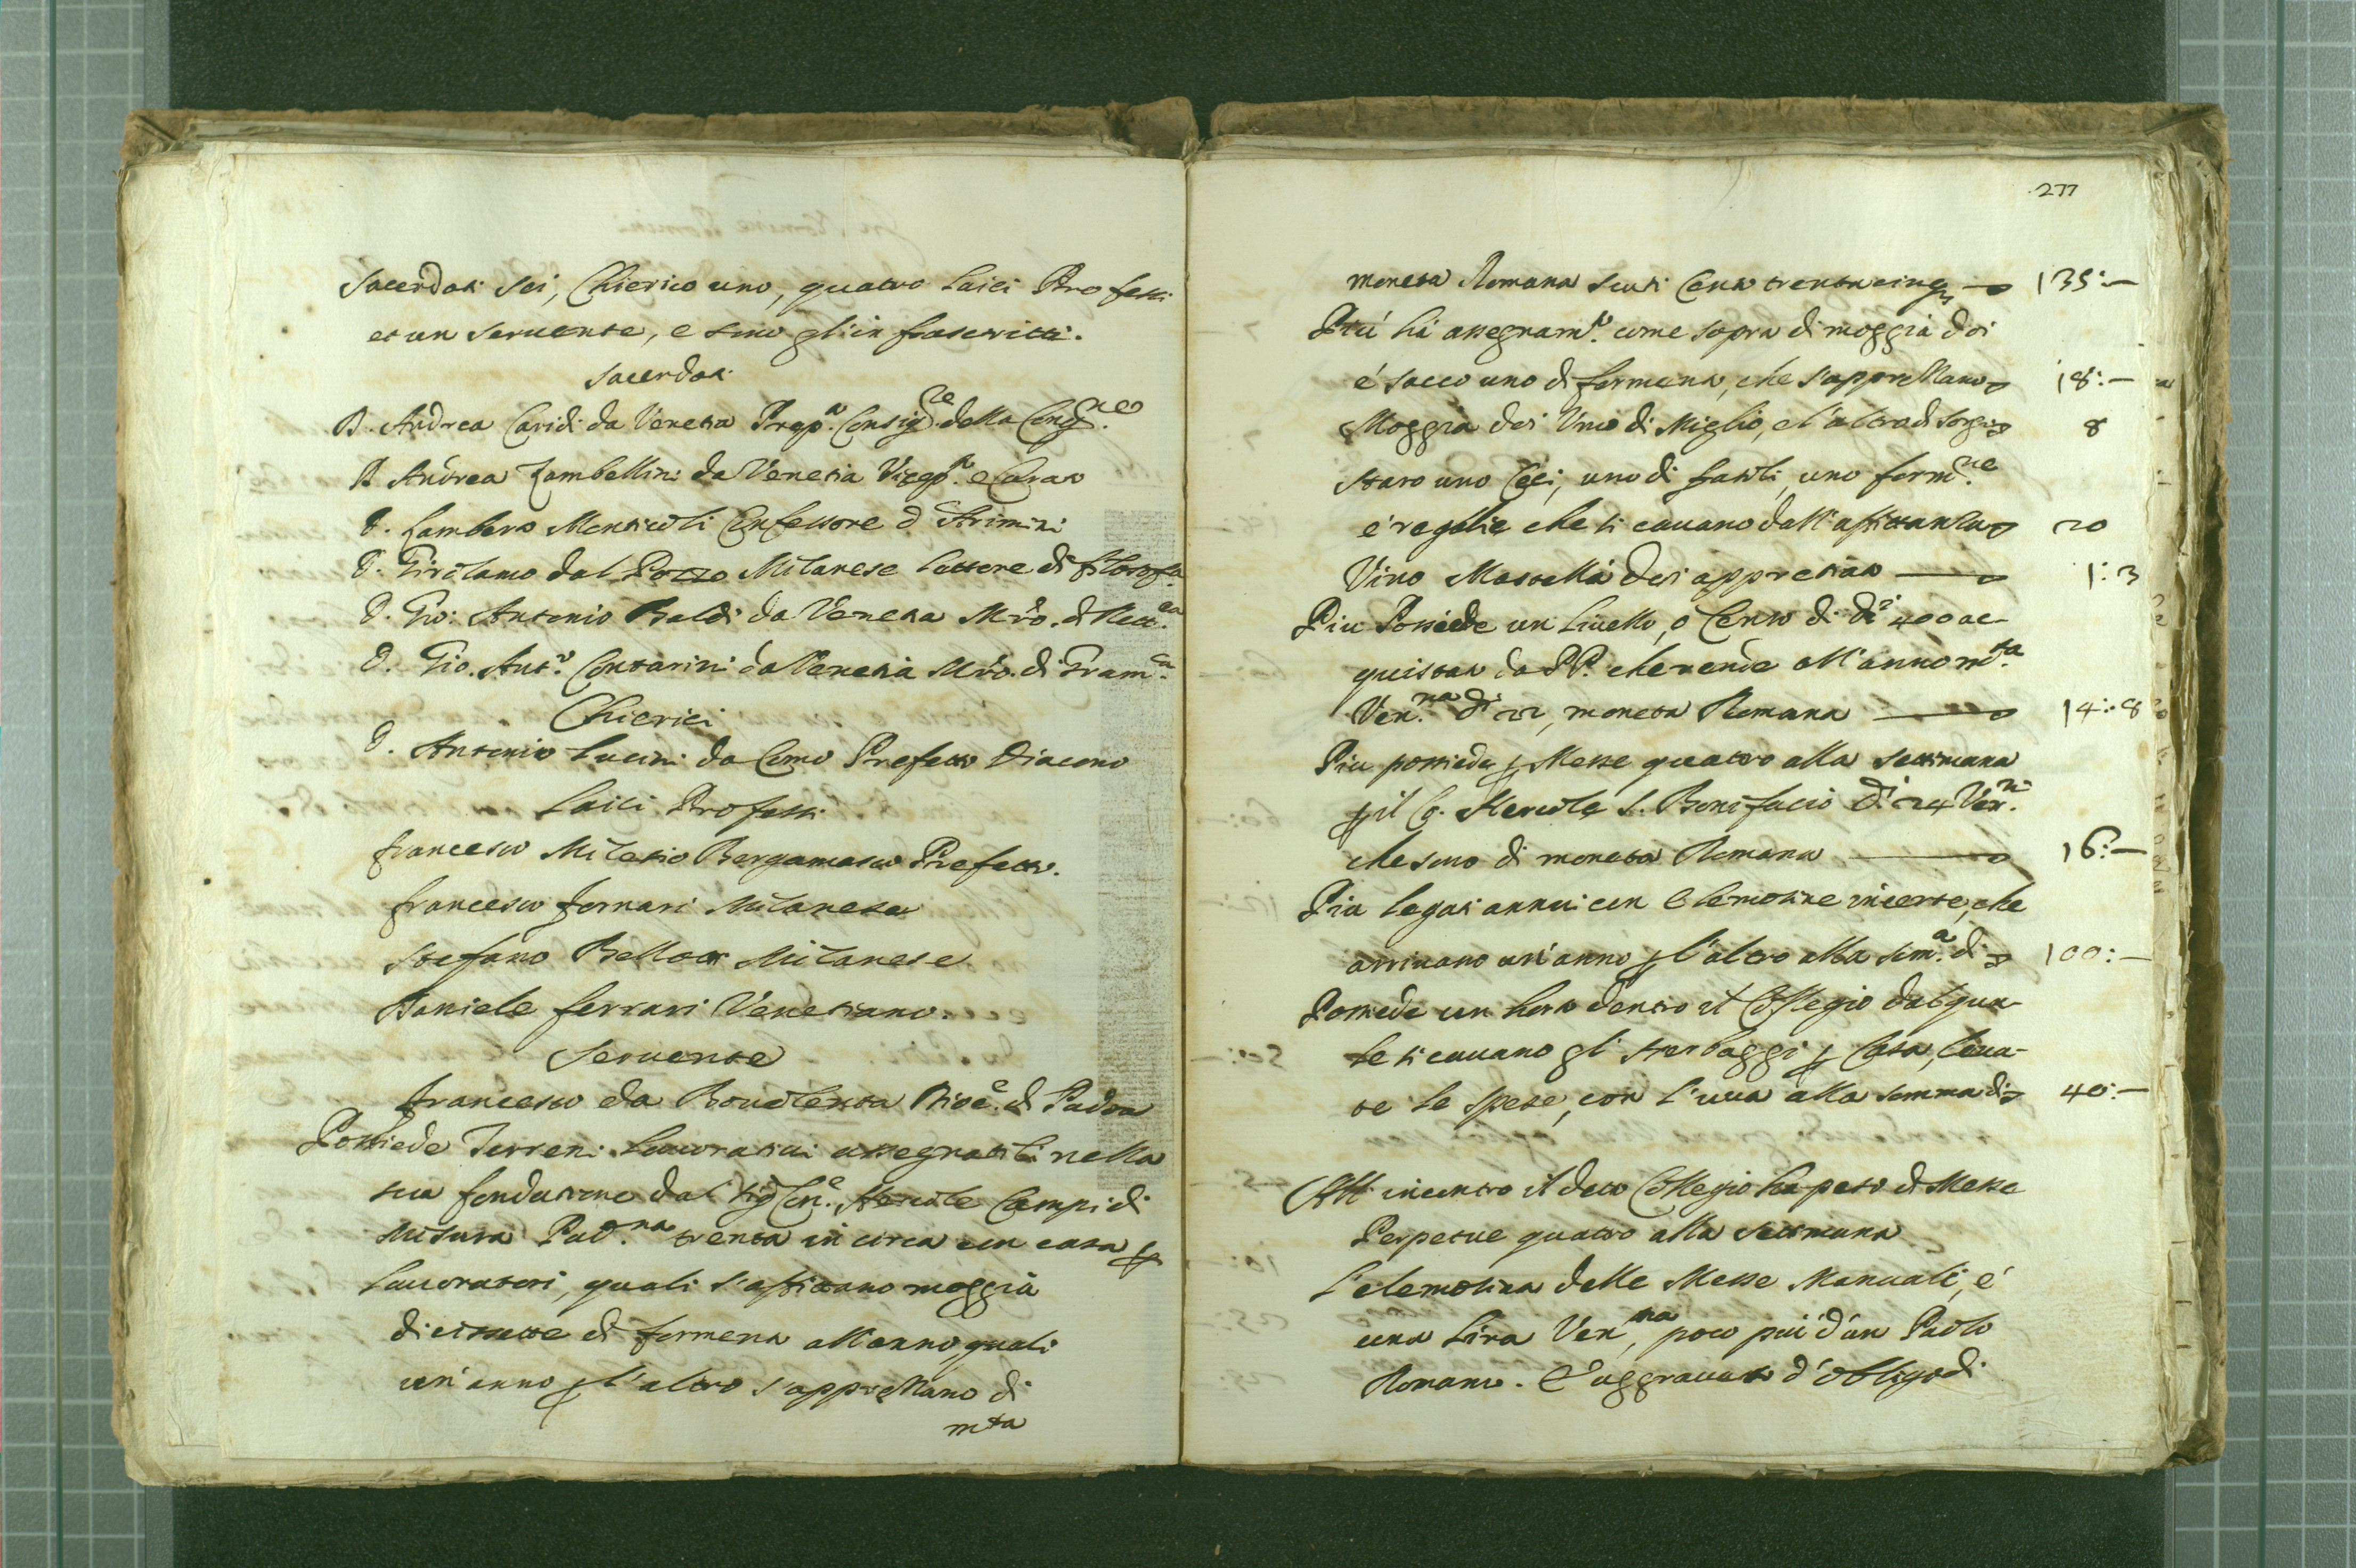 Sacerdoti sei, Chierico uno, quatro laici Professi
et un seruente, e sono gl'infrascritti.
Sacerdoti
D. Andrea Caridi da Venetia Prep.to Consig.re della Cong.ne
D. Andrea Zambellini da Venetia Vicep.to e Curato
D. Lamberto Monticoli Confessore d'Arimini
D. Girolamo dal Pozzo Milanese lettore di filosofia
D. Gio: Antonio Baldi da Venetia Mro. di Rett.ca
D. Gio. Ant.o Contarini da Venetia Mro. di Gram.ca
Chierici
D. Antonio Lucini da Como Prefetto Diacono
Laici Professi
Francesco Milesio Bergamasco Prefetto.
Francesco Fornari Milanese
Stefano Bellotti Milanese
Daniele Ferrari Venetiano.
Seruente
Francesco da Bouolenta Dioc.e di Padoa
Possiede Terreni lauoratiui assegnatili nella
sua fondatione dal Sig.r Con.e Hercole Campi di
Misura Pad.na trenta in circa con casa p
lauoratori, quali s'affittano moggia
diecissette di formento all'anno, quali
un'anno p l'altro s'apprettano di
mta
277
moneta Romana scuti Cento trentacinq; 135:—
Più hà assegnam.to come sopra di moggia doi
é sacco uno di formento, che s'apprettano 18:—
Moggia doi Uno di Miglio, e l'altro di sorgo 8
staro uno Ceci, uno di fasoli, uno form.ne
é regalie che si cauano dall'affittanza 20
Vino Mastella doi appretiato 1:3
Piu Possiede un liuello, o Censo di di 400 ac-
quistato da PP. che rende all'anno m.ta
Ven.na di 22, moneta Romana 14:8
Piu possiede p Messe quatro alla settimana
p il Co. Hercole S. Bonifacio di 24 Ven.ni
che sono di moneta Romana 16:—
Piu legati annui con Elemosine incerte, che
arriuano un'anno p l'altro alla sum.a di 100:—
Possiede un horto dentro il Collegio dal qua-
le si cauano gli herbaggi p Casa, leua-
te le spese, con l'uua alla somma di 40:—
All'incontro il detto Collegio ha peso di Messe
Perpetue quatro alla settimana
L'elemosina delle Messe Manuali, é
una Lira Ven.na, poco più d'un Paolo
Romano. E' aggrauato d'obligo di